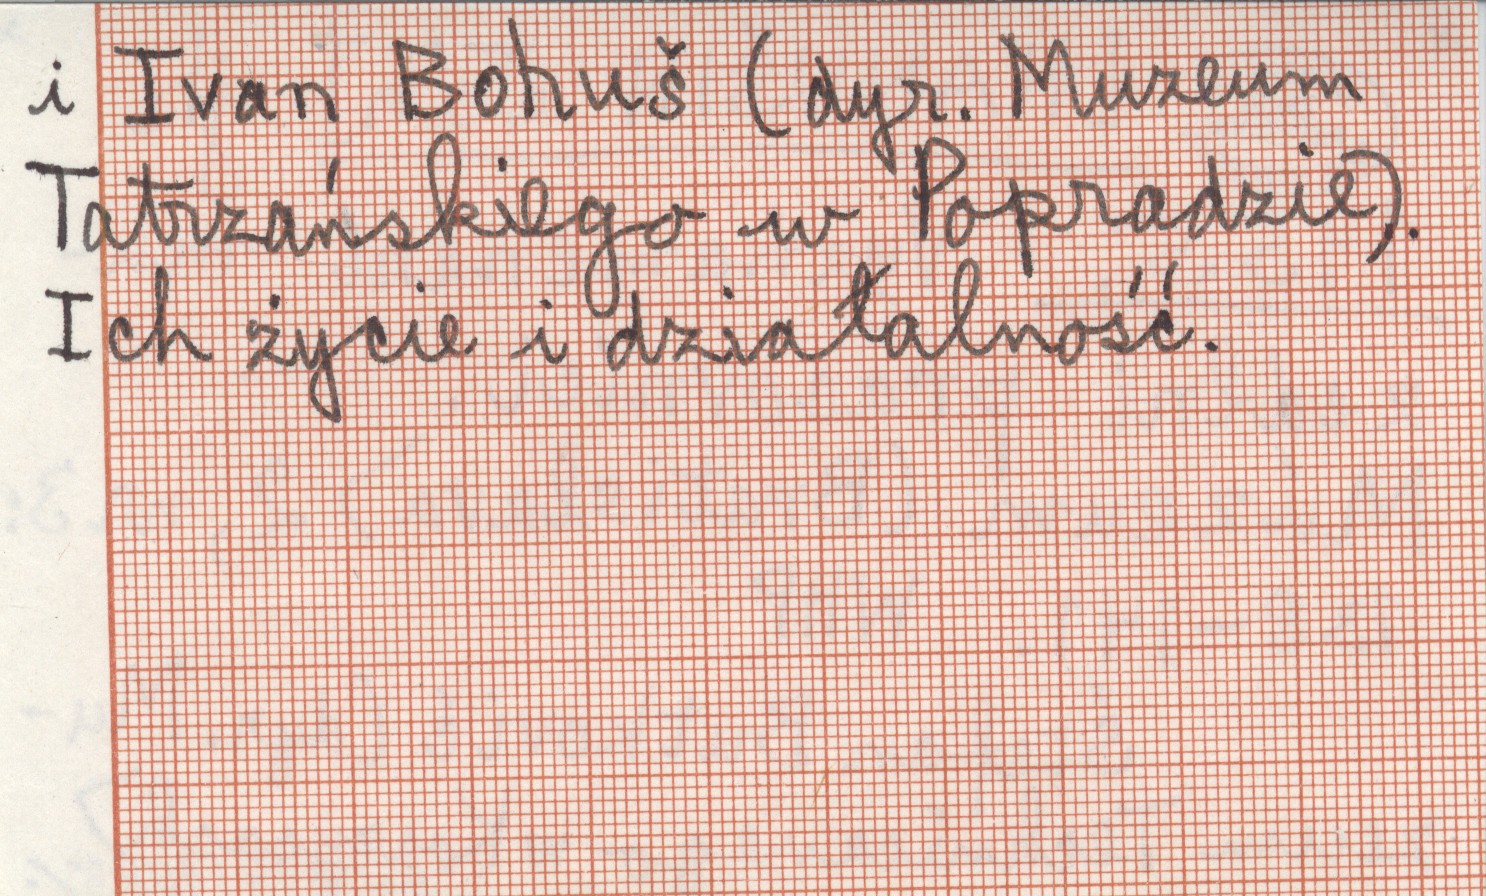 i Ivan Bohuš (dyr. Muzeum
Tatrzańskiego w Popradzie).
Ich życie i działalność.